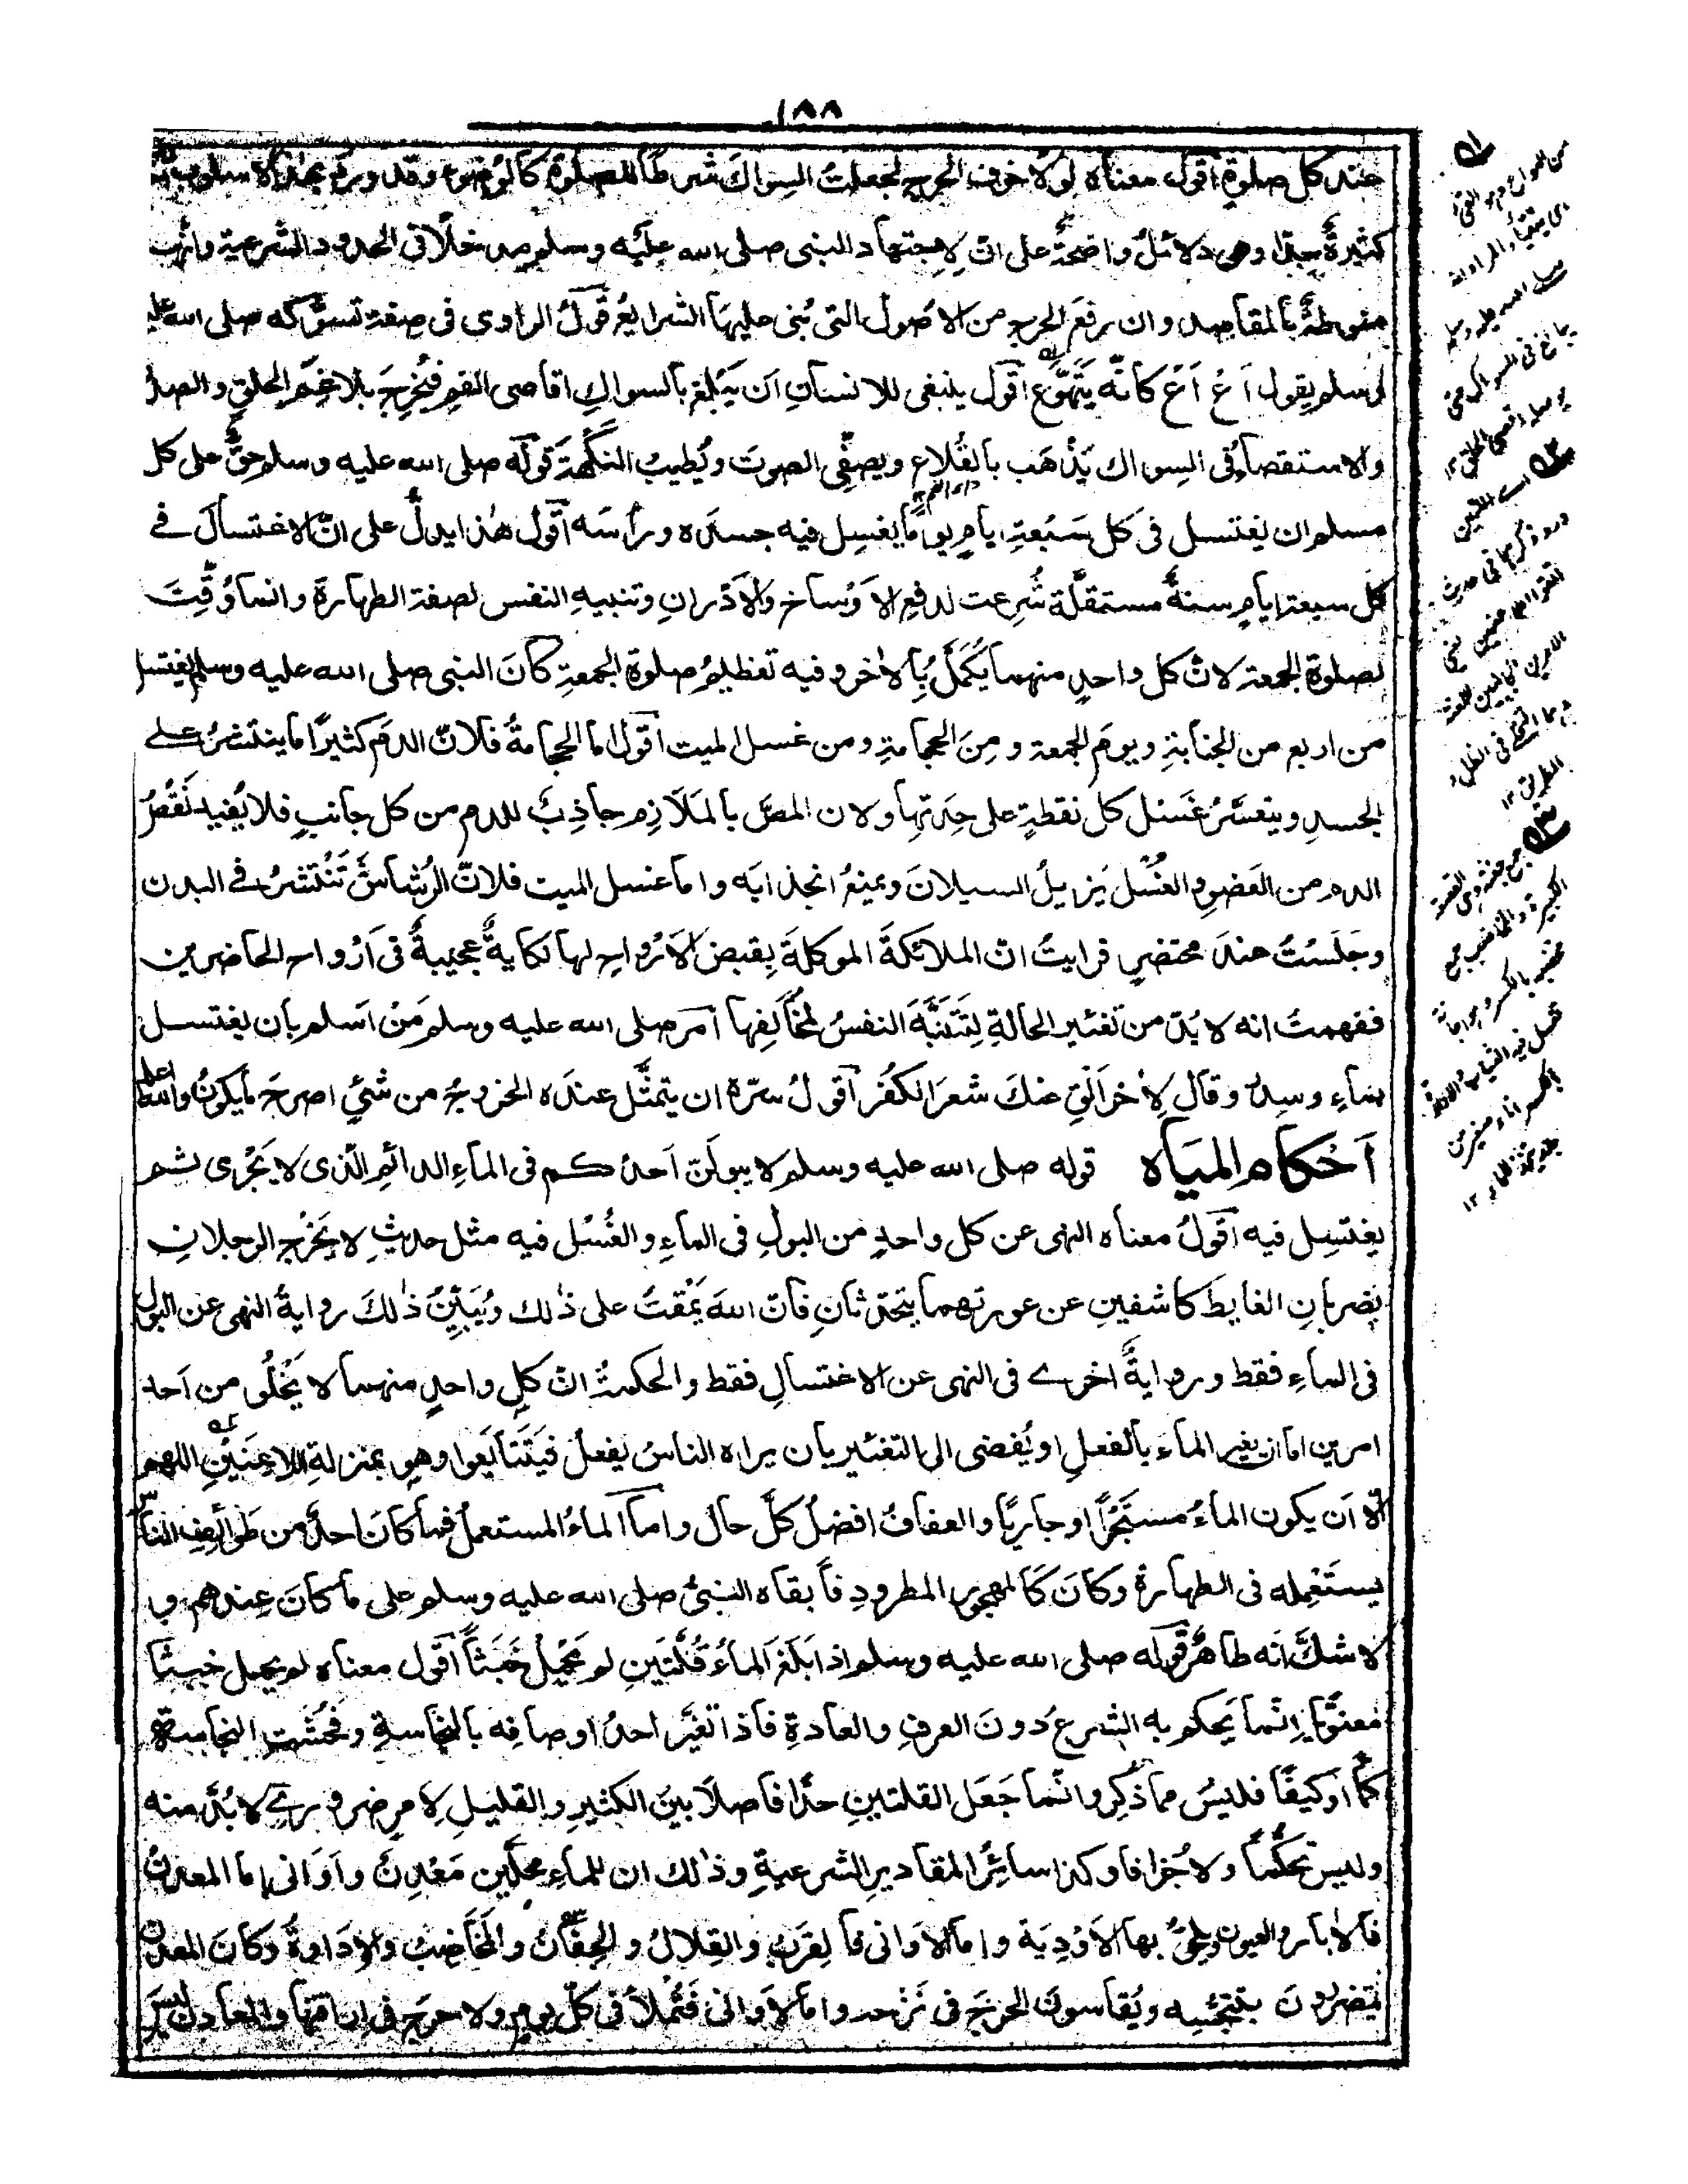 ١٨٨
عند كل صلوةٍ أقول معناه لولا خوف الحرج لجعلتُ السِواك شرطًا للصلوة كالوُضوء وقد ورد بهذا الاسلوب
كثيرةٌ جدًا وهى دلائلُ واضحةٌ على انّ لاجتهاد النبى صلى الله عليه وسلم مدخلًا فى الحدود الشرعية وانها
منوطةٌ بالمقاصد وان رفعَ الحرج من الاصُول التى بُنى عليها الشرايعُ قولُ الراوى فى صفة تسوُّكه صلى الله عليه
وسلم يقول اَعْ اَعْ كانّه يَتَهَوَّع اقول ينبغى للانسان ان يَبْلغ بالسواكِ اقاصى الفمِ فيُخرِجَ بلاغِمَ الحلق والصدر
والاستقصاءُ فى السِواك يَذْهَب بالقُلاع ويصفّى الصوتَ ويُطيبُ النَكْهةَ قوله صلى الله عليه وسلم حقٌّ على كل
داء الفم ١٢
مسلم ان يغتسل فى كل سَبْعةِ ايامٍ يومًا يغسِل فيه جسدَه ورأسَه اقول هٰذا يدلُّ على انّ الاغتسالَ فے
كل سبعة ايامٍ سنةٌ مستقلّة شُرعت لدفع الاوْساخ والادْرانِ وتنبيهِ النفس لصفة الطهارة وانما وُقّتَ
لصلوة الجمعة لانّ كل واحدٍ منهما يُكَمَّلُ بالاٰخر وفيه تعظيمُ صلوة الجمعةِ كانَ النبى صلى الله عليه وسلم يغتسل
من اربع من الجنابةِ ويومَ الجمعة ومِنَ الحجامةِ ومن غسل الميت اقول اما الحجامةُ فلانّ الدمَ كثيرًا ما ينتشرُ علے
الجسدِ ويتعسَّرُ غَسْل كل نقطةٍ على حِدَتِها ولان المصَّ بالمَلازِم جاذِبٌ للدم من كل جانبٍ فلا يُفيد نَقْصُ
الدم من العَضوِ والغُسْل يَزيلُ السيلانَ ويمنعُ انجذابَه واما غسل الميت فلانّ الرُشاشَ تَنْتشرُ فے البدن
وجَلَسْتُ عندَ محتضرٍ فرايتُ انّ الملائكةَ الموكلةَ بِقبض الاَرْواحِ لها نكايةٌ عجيبةٌ فى اَرْواح الحاضرين
ففهمتُ انه لا بُدّ من تغيير الحالةِ لِتَتَنَبَّهَ النفسُ لمخالِفِها اَمر صلى الله عليه وسلم مَنْ اَسْلم بان يغتسل
بماءٍ وسِدْرٍ وقال لِاٰخر اَلْقِ عنكَ شعرَ الكفُر اقول سرّه ان يتمثَّل عندَه الخروجُ من شيْءٍ اصرحَ ما يكونُ والله اعلم
اَحْكام المِيَاه قوله صلى الله عليه وسلم لا يبولَنّ اَحدُكم فى الماءِ الدائمِ الّذى لا يَجْرى ثم
يغتسِل فيه اقولُ معناه النهى عن كل واحدٍ من البولِ فى الماءِ والغُسْل فيه مثل حديثِ لا يَخْرُج الرجلان
يضربانِ الغايطَ كاشفينِ عن عورتهما يتحدّثانِ فانّ اللهَ يَمْقتُ على ذٰلك ويُبَيِّنُ ذٰلكَ روايةُ النهى عن البول
فى الماءِ فقط وروايةٌ اخرے فى النهى عن الاغتسالِ فقط والحكمةُ انّ كل واحدٍ منهما لا يَخْلُو من اَحد
امرين اما ان يغير الماء بالفعلِ او يُفضى الى التغيير بان يراه الناسُ يفعلُ فيَتَتابَعوا وهو بمنزلةِ اللاعِنَيْنِ اللهم
الّا ان يكون الماءُ مستَبْحِرًا او جاريًا والعفافُ افضلُ كلَّ حال واما الماءُ المستعملُ فما كانَ احدٌ من طوائِفِ الناس
يستَعْمِله فى الطهارة وكانَ كالمهجور المطرودِ فابقاه النبىُّ صلى الله عليه وسلم على ما كانَ عِندهم و
لا شكَّ انّه طاهرٌ قوله صلى الله عليه وسلم اذا بَلَغ الماءُ قُلّتَينِ لم يَحْمِلْ خَبَثًا اقول معناه لم يحمِل خبثًا
معنويًا اِنّما يَحكم به الشرعُ دونَ العرفِ والعادةِ فاذا تغيَّر احدُ اوصافِه بالنجاسةِ وفَحُشَتِ النجاسةُ
كمًّا اَو كيفًا فليسَ مما ذُكِر وانّما جَعَل القلتينِ حدًّا فاصلًا بينَ الكثيرِ والقليلِ لِامرٍ ضرورىٍّ لا بُدَّ منه
وليس تحكُّمًا ولا جُزافا وكذا سائِرُ المقاديرِ الشرعيةِ وذٰلك ان للماءِ محلَّين مَعْدِنٌ واَوَانى اما المعدنُ
فالاٰبار والعيون ويلحقُ بها الاَوْدِيَة واما الاَوانى فالقِرَبُ والقِلالُ والجِفَانُ والمَخَاضِبُ والاِدَاوةُ وكانَ المعدن
يتضررونَ بتَنَجُّسِه ويُقاسونَ الحرجَ فى نَزْحه واما الاَوانى فَتُمْلأُ فى كلّ يومٍ ولا حرجَ فى اراقتِها والمعادن ليسَ
ـه١
ـه٢
ـه٣